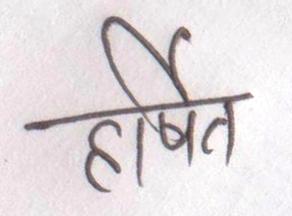 हर्षित